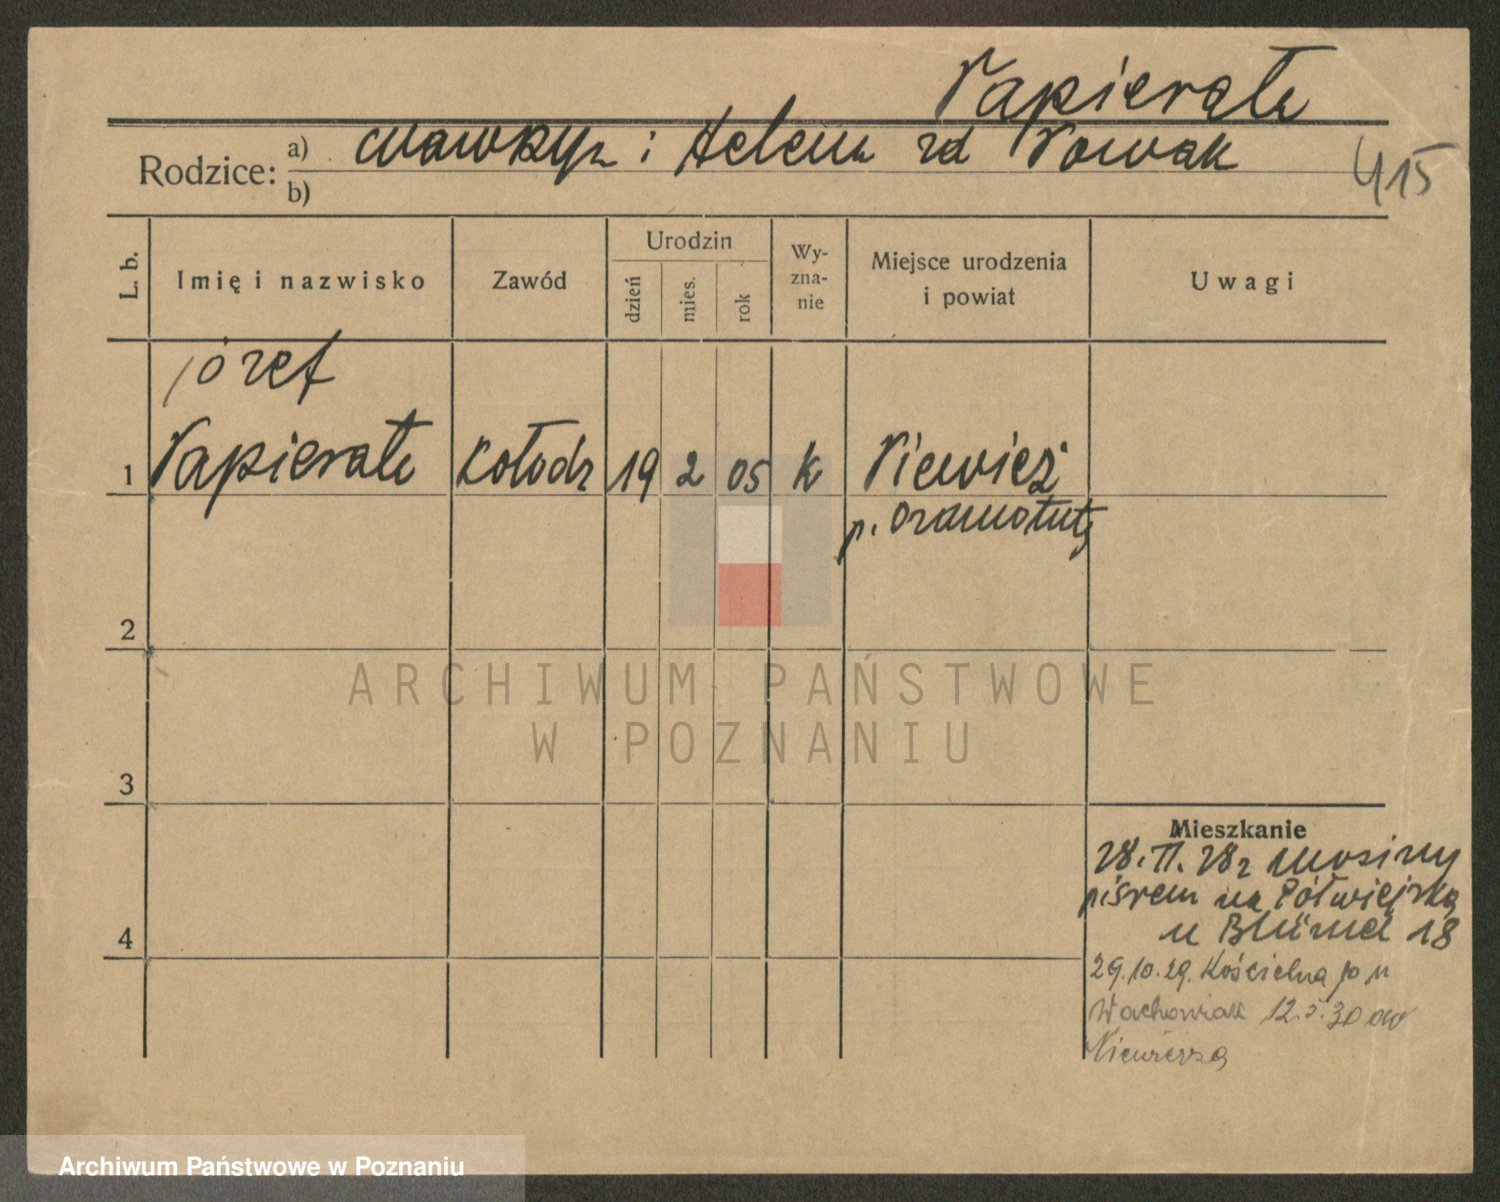 Papierała
Rodzice: a) Wawrzyn i Helena zd Nowak
b)
415
L. b.
Imię i nazwisko
Zawód
Urodzin
dzień
mies.
rok
Wy-
zna-
nie
Miejsce urodzenia
i powiat
Uwagi
Józef
1 Papierała kołodz 19 2 05 k Niewierz
p. Szamotuły
2
3
4
ARCHIWUM PAŃSTWOWE
W POZNANIU
Mieszkanie
28. II. 28 r
na Półwiejską
u 18
29.10.29. Kościelna u
Wachowiak 12.5.30 do
Niewierza
Archiwum Państwowe w Poznaniu